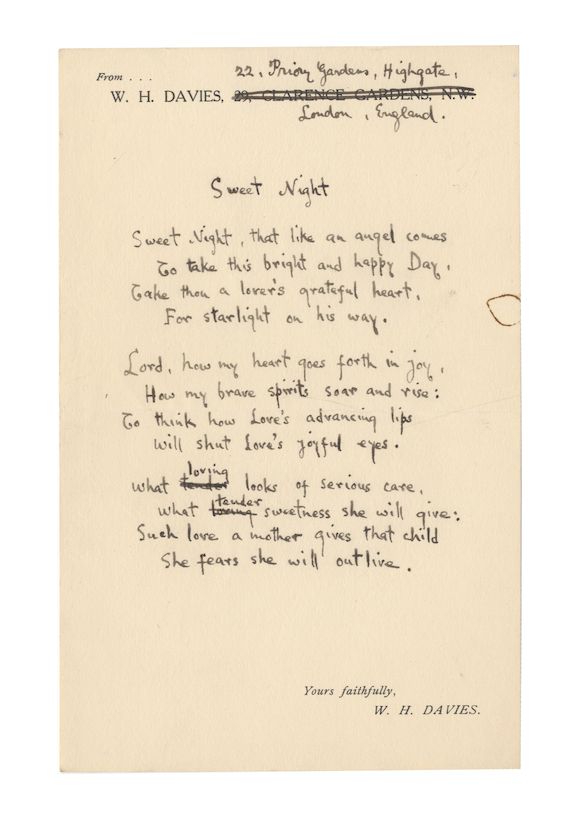 22, Priory Gardens, Highgate,
From . . .
W. H. DAVIES, 29, CLARENCE GARDENS, N.W.
London, England.
Sweet Night
Sweet Night, that like an angel comes
To take this bright and happy Day,
Take thou a lover's grateful heart,
For starlight on his way.
Lord, how my heart goes forth in joy,
How my brave spirits soar and rise:
To think how Love's advancing lips
Will shut Love's joyful eyes.
What tender loving looks of serious care,
What loving tender sweetness she will give:
Such love a mother gives that child
She fears she will outlive.
Yours faithfully,
W. H. DAVIES.